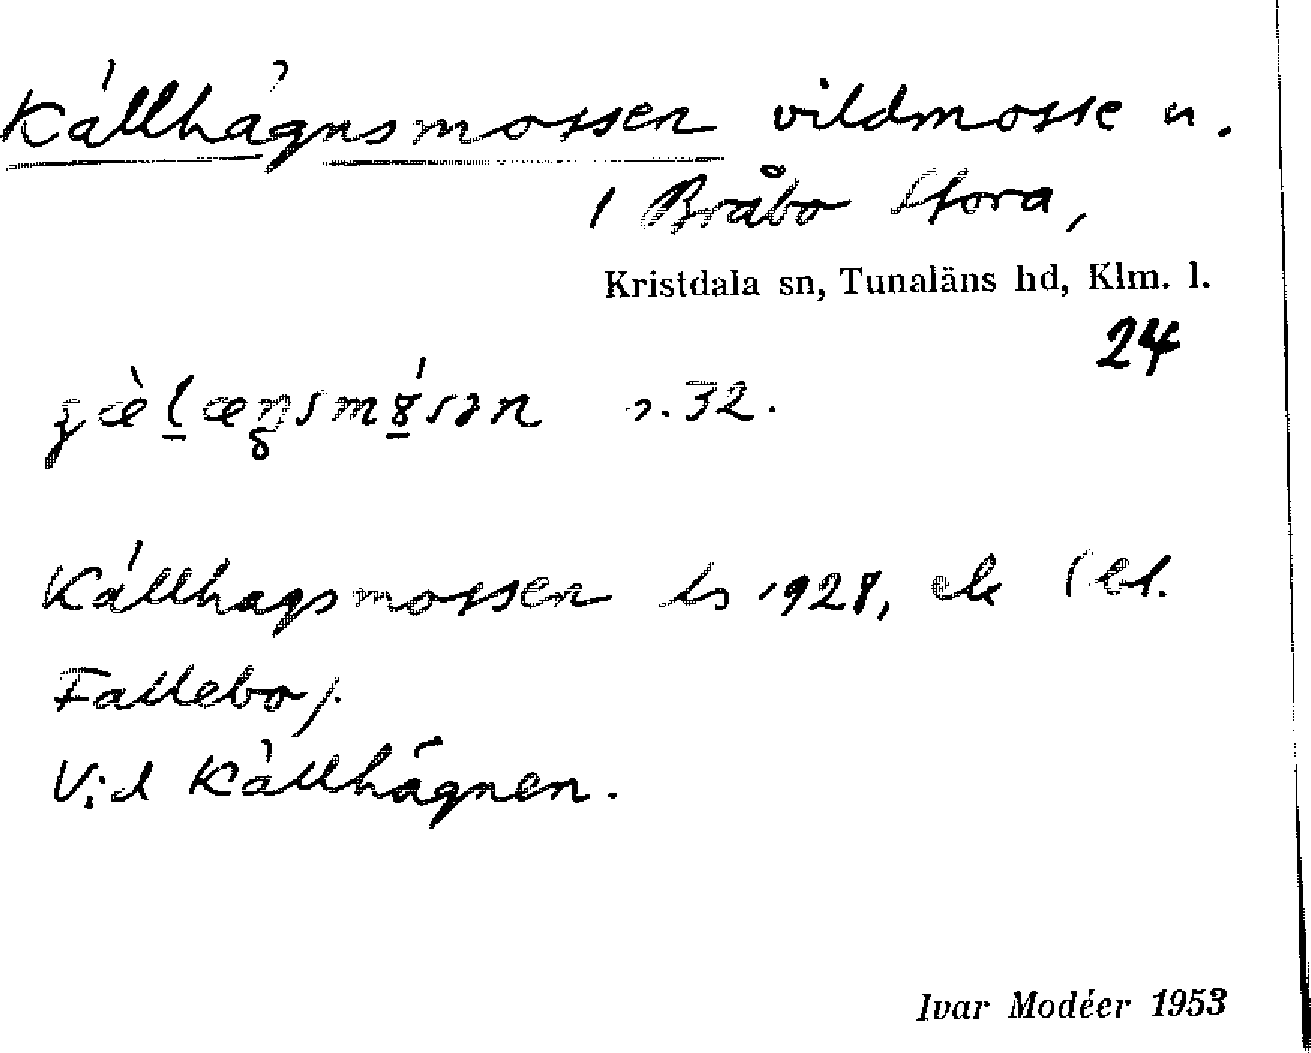 Källhägnsmossen vildmosse n.
/ Bråbo Stora,
Kristdala sn, Tunaläns hd, Klm. l.
24
s. 32.
Källhagsmossen ls 1928, ek
Fallebo).
Vid Källhägnen.
Ivar Modéer 1953